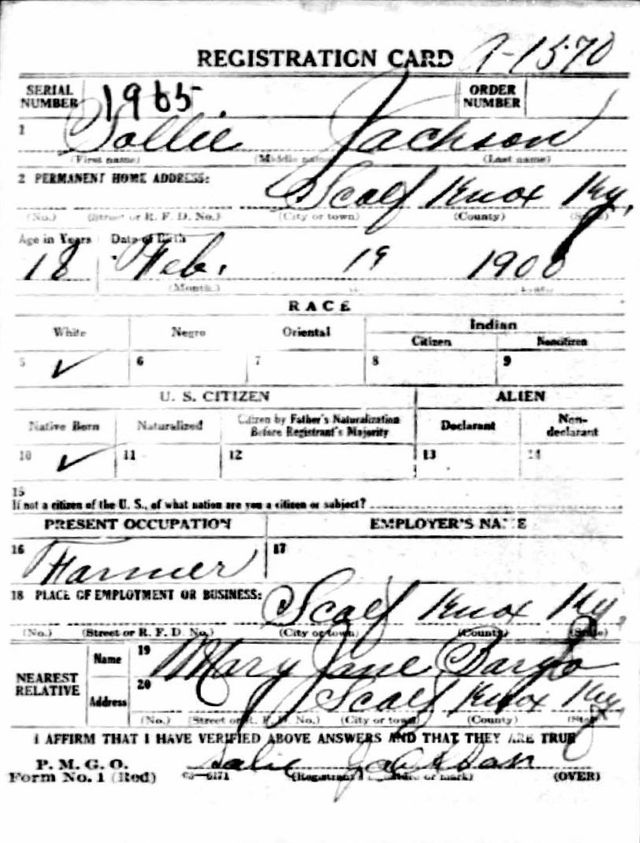 REGISTRATION CARD A-1570
SERIAL NUMBER 1965 ORDER NUMBER
1 Sollie Jackson
(First name) (Middle name) (Last name)
2 PERMANENT HOME ADDRESS: Scalf Knox Ky.
(No.) (Street or R. F. D. No.) (City or town) (County) (State)
Age in Years Date of Birth
18 Feb. 19 1900
(Month.)
RACE
White Negro Oriental Indian
Citizen Noncitizen
5 ✓ 6 7 8 9
U. S. CITIZEN ALIEN
Native Born Naturalized Citizen by Father's Naturalization Before Registrant's Majority Declarant Non-declarant
10 ✓ 11 12 13 14
15
If not a citizen of the U. S., of what nation are you a citizen or subject?
PRESENT OCCUPATION EMPLOYER'S NAME
16 Farmer 17
18 PLACE OF EMPLOYMENT OR BUSINESS: Scalf Knox Ky.
(No.) (Street or R. F. D. No.) (City or town) (County) (State)
NEAREST RELATIVE Name 19 Mary Jane Bargo
Address 20 Scalf Knox Ky.
(No.) (Street or R. F. D. No.) (City or town) (County) (State)
I AFFIRM THAT I HAVE VERIFIED ABOVE ANSWERS AND THAT THEY ARE TRUE
P. M. G. O.
Form No. 1 (Red) 03-6171 Salie Jackson
(Registrant's signature or mark) (OVER)